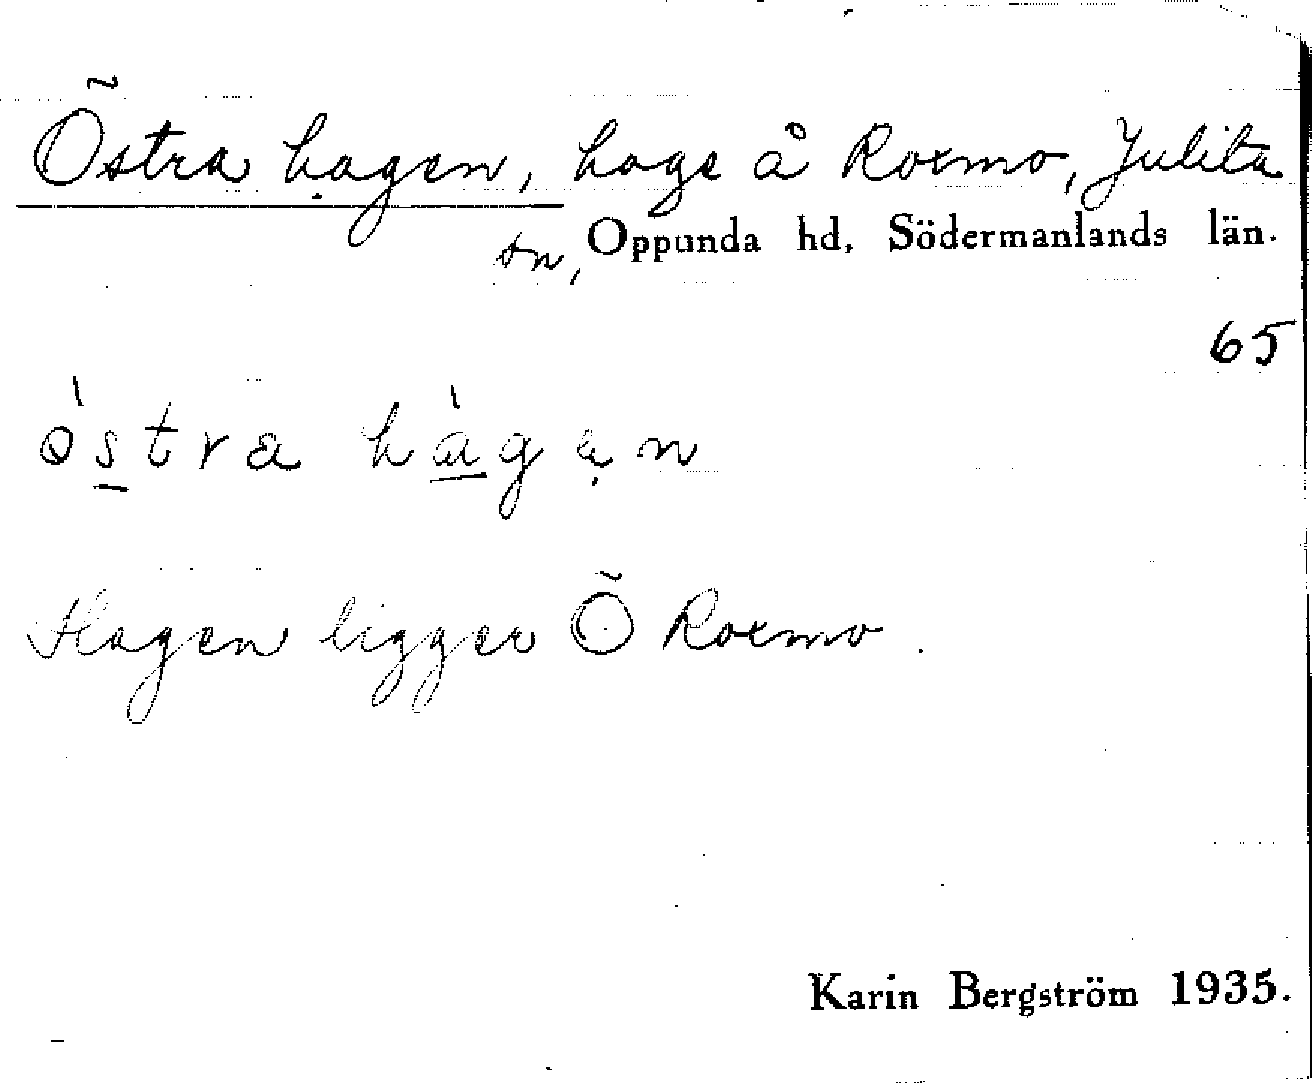 Östra hagen, hage å Roxmo, Julita
sn, Oppunda hd. Södermanlands län.
65
östra hagen
Hagen ligger Ö Roxmo.
Karin Bergström 1935.